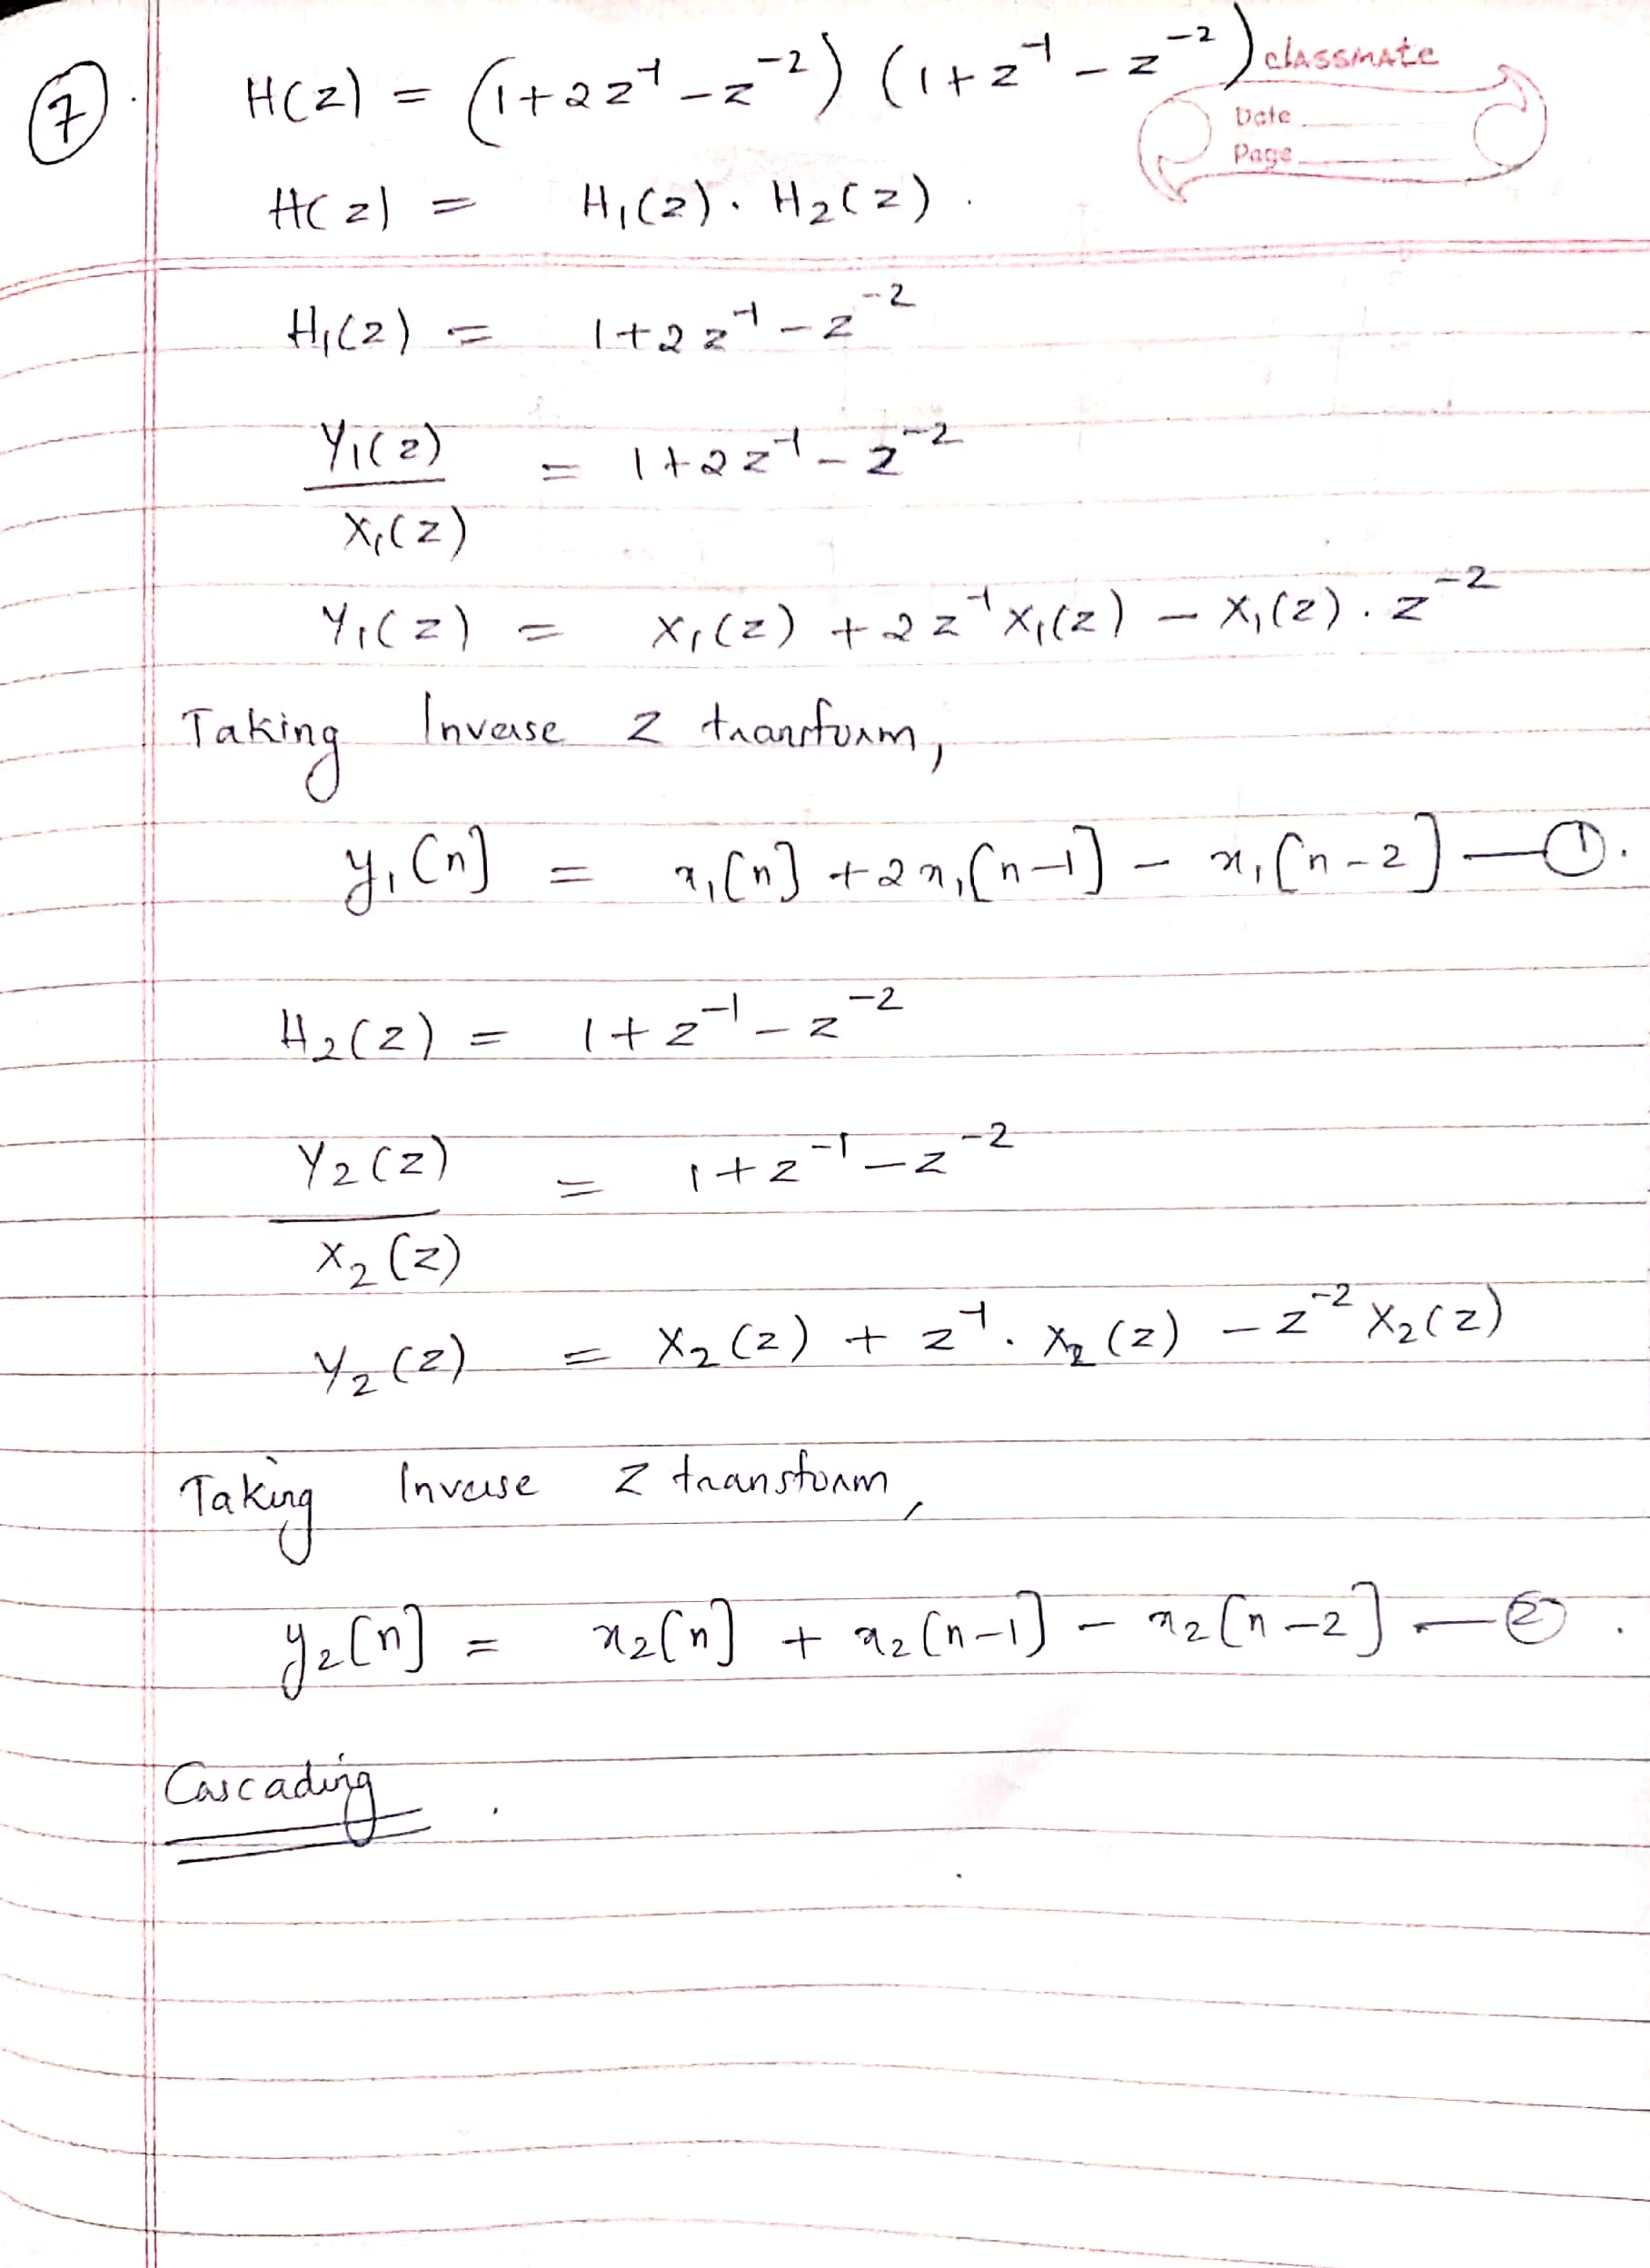 7. H(z) = (1+2z⁻¹ - z⁻²) (1+z⁻¹ - z⁻²)
classmate
Date
Page
H(z) = H₁(z). H₂(z).
H₁(z) = 1+2z⁻¹ - z⁻²
Y₁(z) = 1+2z⁻¹ - z⁻²
X₁(z)
Y₁(z) = X₁(z) + 2z⁻¹X₁(z) - X₁(z). z⁻²
Taking Inverse z transform,
y₁[n] = x₁[n] + 2x₁[n-1] - x₁[n-2] — ①.
H₂(z) = 1+z⁻¹ - z⁻²
Y₂(z) = 1+z⁻¹ - z⁻²
X₂(z)
Y₂(z) = X₂(z) + z⁻¹. X₂(z) - z⁻² X₂(z)
Taking Inverse z transform,
y₂[n] = x₂[n] + x₂[n-1] - x₂[n-2] — ②.
Cascading.